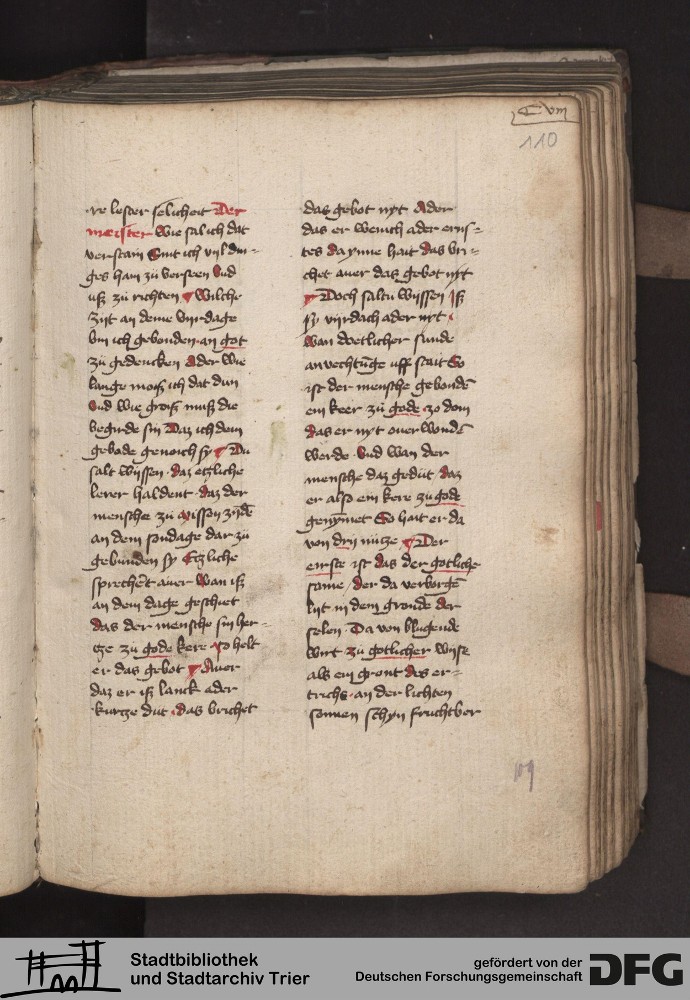 C viij
110
re lester selicheit Der
meister Wie sal ich dat
verstain Sint ich vyl din-
ges han zü verseen Vnd
uß zü richten Wilche
Ziit an deme vurdage
bin ich gebonden an got
zü gedencken Ader wie
lange moiß ich dat dun
Vnd wie groiß muß die
begirde sin Daz ich dem
gebode genoich sy Du
salt wyssen daz etzliche
lerer haldent daz der
mensche zü
an dem sondage dar zü
gebunden sy Etzliche
sprechēt auer Wan iß
an dem dage geschiet
das der mensche sin her-
tze zü gode kere So helt
er das gebot Auer
daz er iß lanck ader
kurtze düt das brichet
das gebot nyt Ader
das er wenich ader erns-
tes da ynne hait das bri-
chet auer das gebot nyt
Doch saltu wyssen Iß
sy vyrdach ader nyt
Wan doetlicher sunde
anvechtūge uff stait So
ist der mensche gebondē
ein keer zü gode zo doin
das er nyt ouer wondē
werde Vnd wan der
mensche daz gedüt daz
er also ein kere zu gode
genymet So hait er da
von drij nütze Der
eirste ist das der gotliche
same der da verborgē
liit in dem gronde der
selen Da von blugende
wirt zü gotlicher wyse
als ein gront des er-
trichs an der lichten
sonnen schyn fruchtber
109
Stadtbibliothek
und Stadtarchiv Trier
gefördert von der
Deutschen Forschungsgemeinschaft
DFG